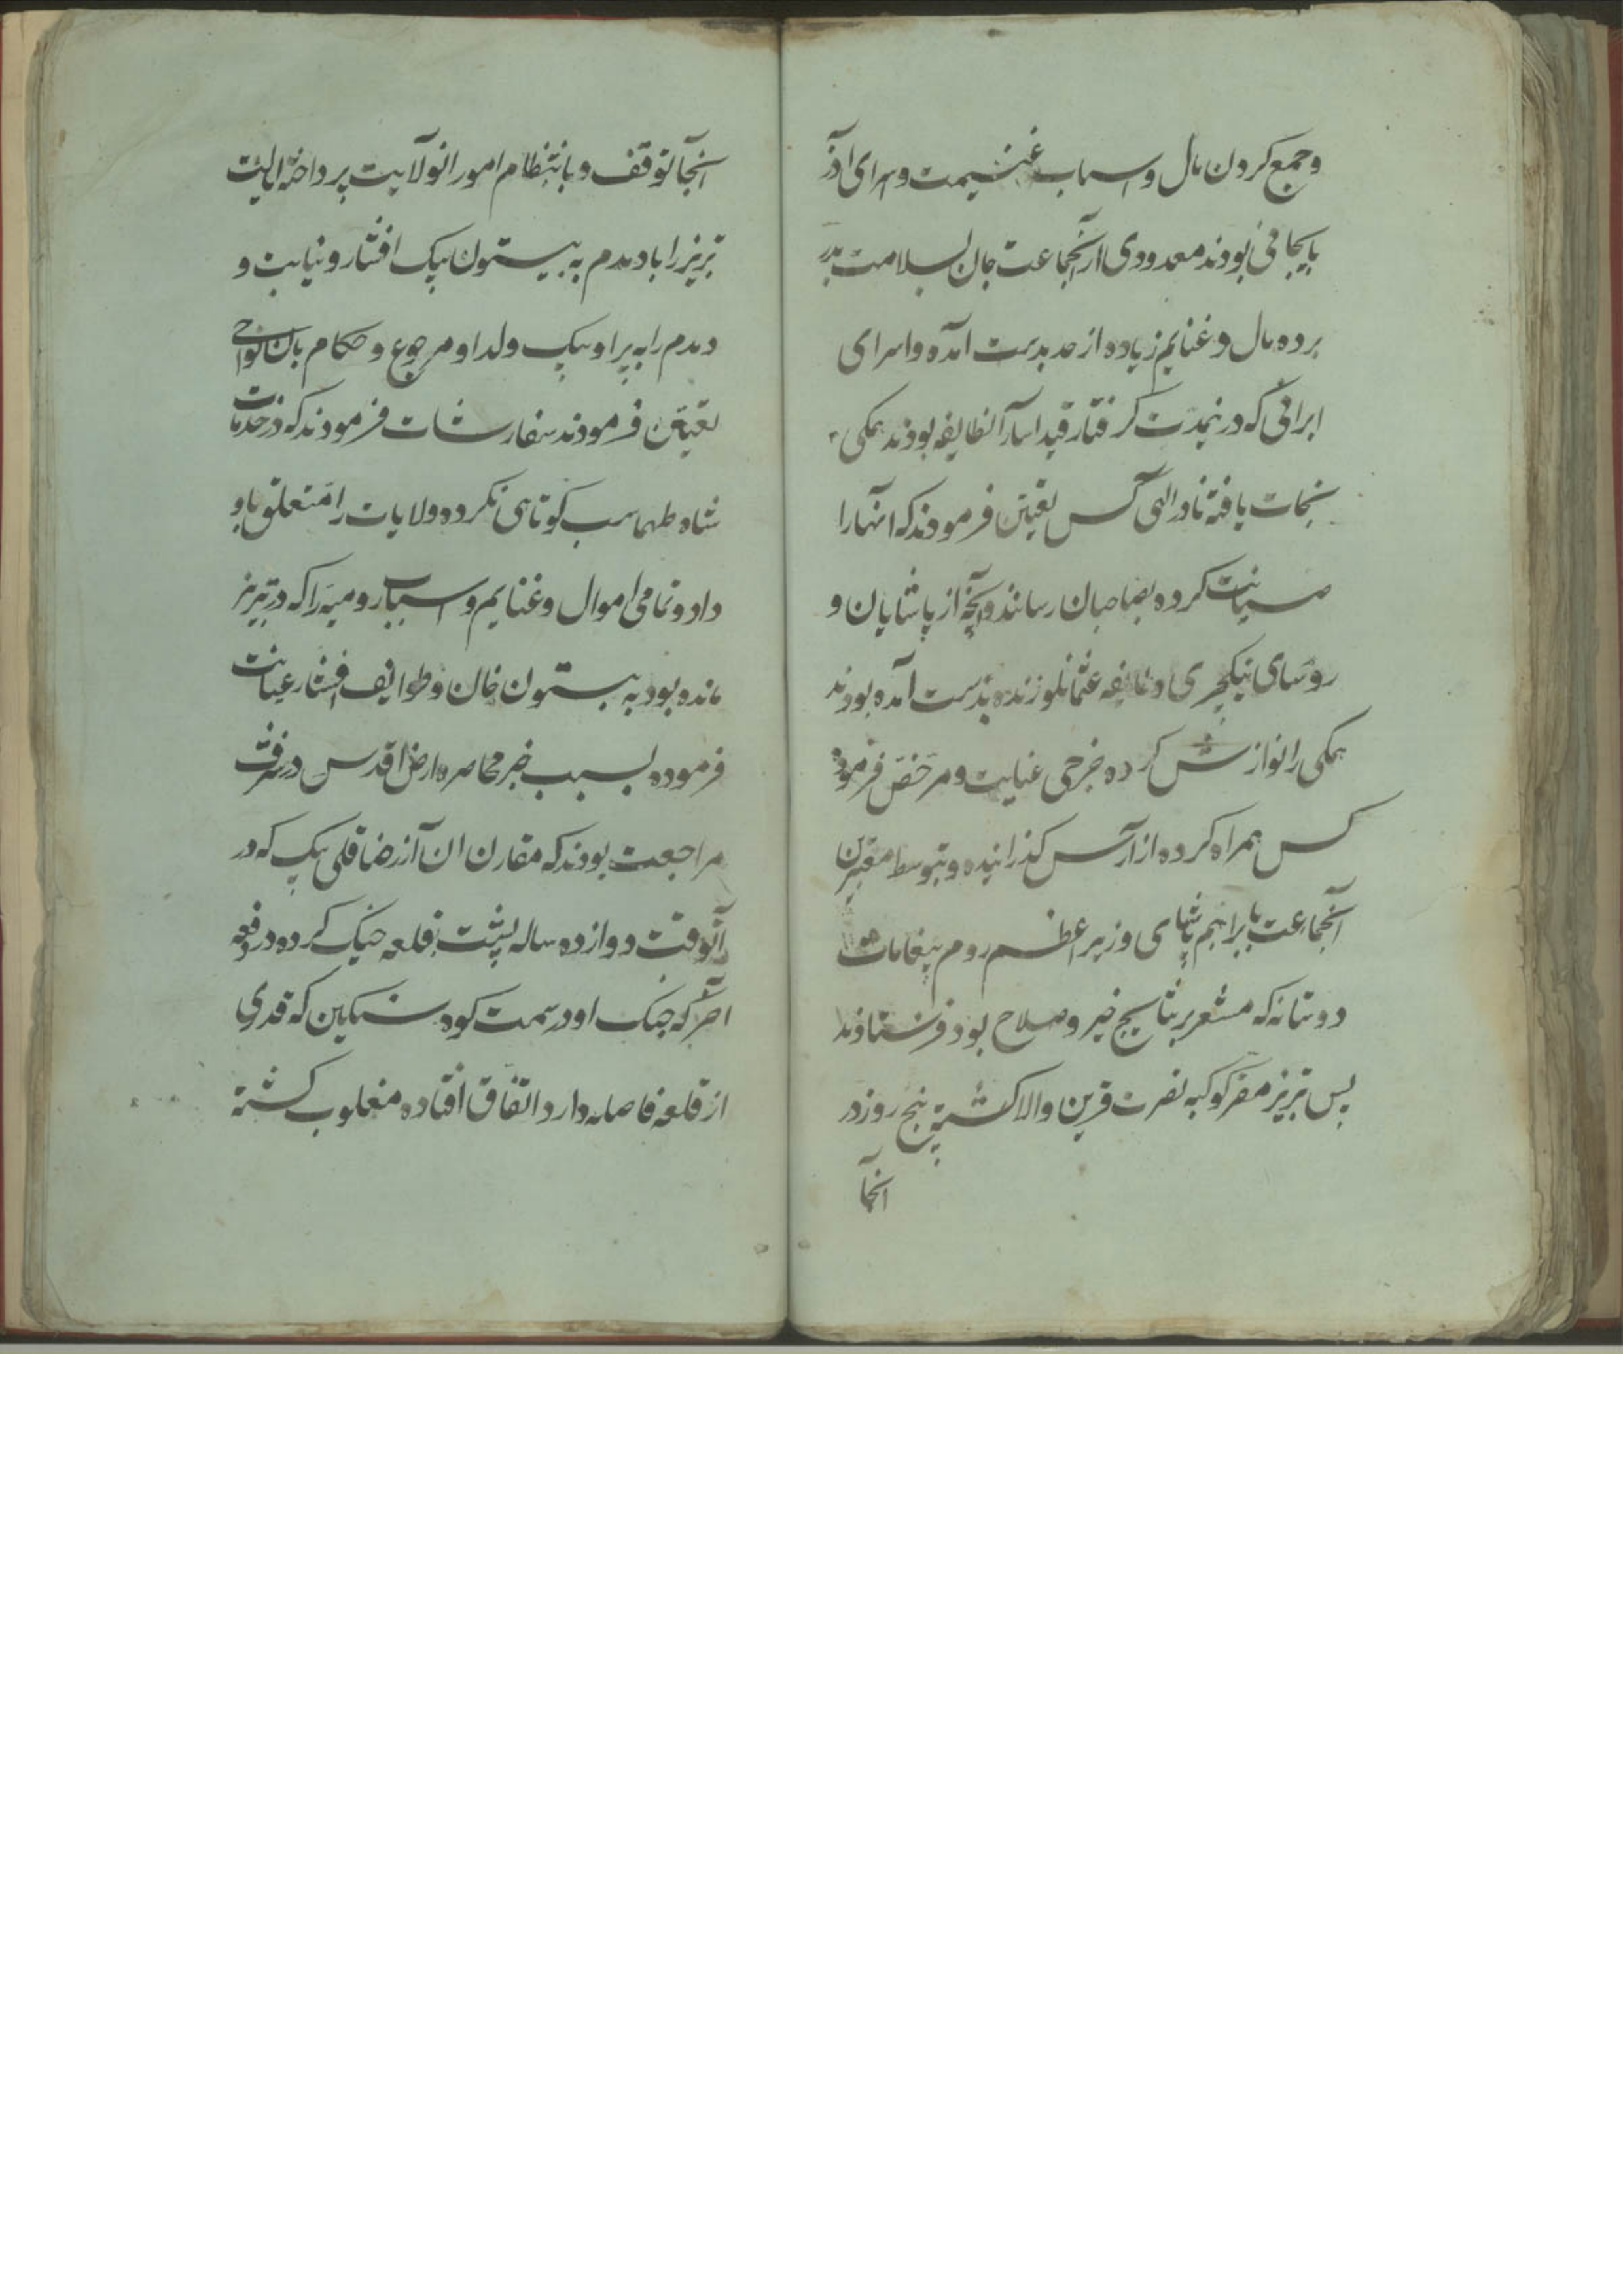 و جمع کردن مال و اسباب غنیمت و اسرای اذر
بایجانی بودند معدودی از آنجماعت جان بسلامت بدر
برده مال و غنایم زیاده از حد بدست آمده و اسرای
ایرانی که در نمدت کرفتار قید اسار آنطایفه بودند همکی
نجات یافته نادر الهی کس تعیین فرمودند که آنها را
صیانت کرده بصاحبان رسانند و آنچه از پاشایان و
روسای ینکچری و طایفه عثمانلو زنده بدست آمده بودند
همکی را نوازش کرده خرجی عنایت و مرخص فرموده
کس همراه کرده از ارس کذرانیده و بتوسط معتبرین
آنجماعت بابراهیم پاشای وزیر اعظم روم پیغامات
دوستانه که مشعر بر نتایج خیر و صلاح بود فرستادند
پس تبریز مقر کوکبه نصرت قرین والا کشته پنج روز در
آنجا
آنجا توقف و بانتظام امور انولایت پرداخته ایالت
تبریز را با دمدم به بیستون بیک افشار و نیابت و
دمدم را به پیر اوبیک ولد او مرجوع و حکام بان نواحی
تعیین فرمودند سفارشات فرمودند که در خدمات
شاه طهماسب کوتاهی نکرده ولایات را متعلق باو
داد و تمامی اموال و غنایم و اسباب رومیه را که در تبریز
مانده بود به بیستون خان و طوایف افشار عنایت
فرموده بسبب خبر محاصره ارض اقدس در شرف
مراجعت بودند که مقارن ان آز رضا قلی بیک که در
آنوقت دوازده ساله پشت بقلعه جنک کرده در دفعه
آخر که جنک او در سمت کوه سنکین که قدری
از قلعه فاصله دارد اتفاق افتاده مغلوب کشته